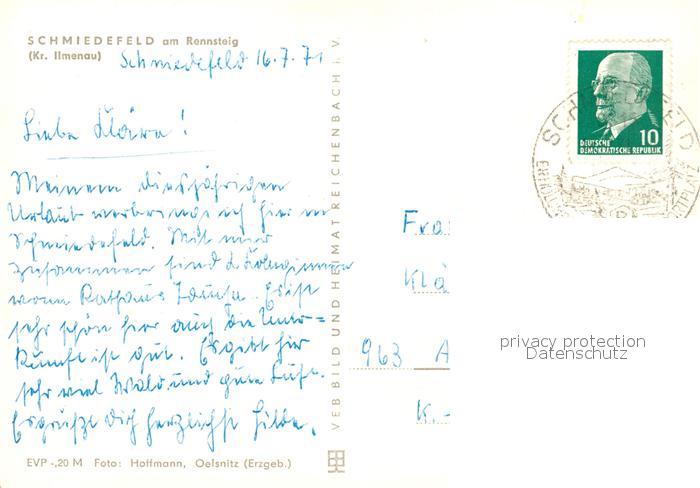 SCHMIEDEFELD am Rennsteig
(Kr. Ilmenau)
Schmiedefeld 16.7.71
Liebe Klära!
Meinen diesjährigen
Urlaub verbringe ich hier in
Schmiedefeld. Mit mir
zusammen sind 2 Kolleginnen
vom Rathaus. Es ist
sehr schön hier auch die Unter=
kunft ist gut. Es gibt hier
sehr viel Wald und gute Luft.
Es grüßt Dich herzlichst Hilde.
EVP -,20 M Foto: Hoffmann, Oelsnitz (Erzgeb.)
VEB BILD UND HEIMAT REICHENBACH i. V.
10
DEUTSCHE
DEMOKRATISCHE REPUBLIK
Fra
Klä
963 A
K.-
privacy protection
Datenschutz